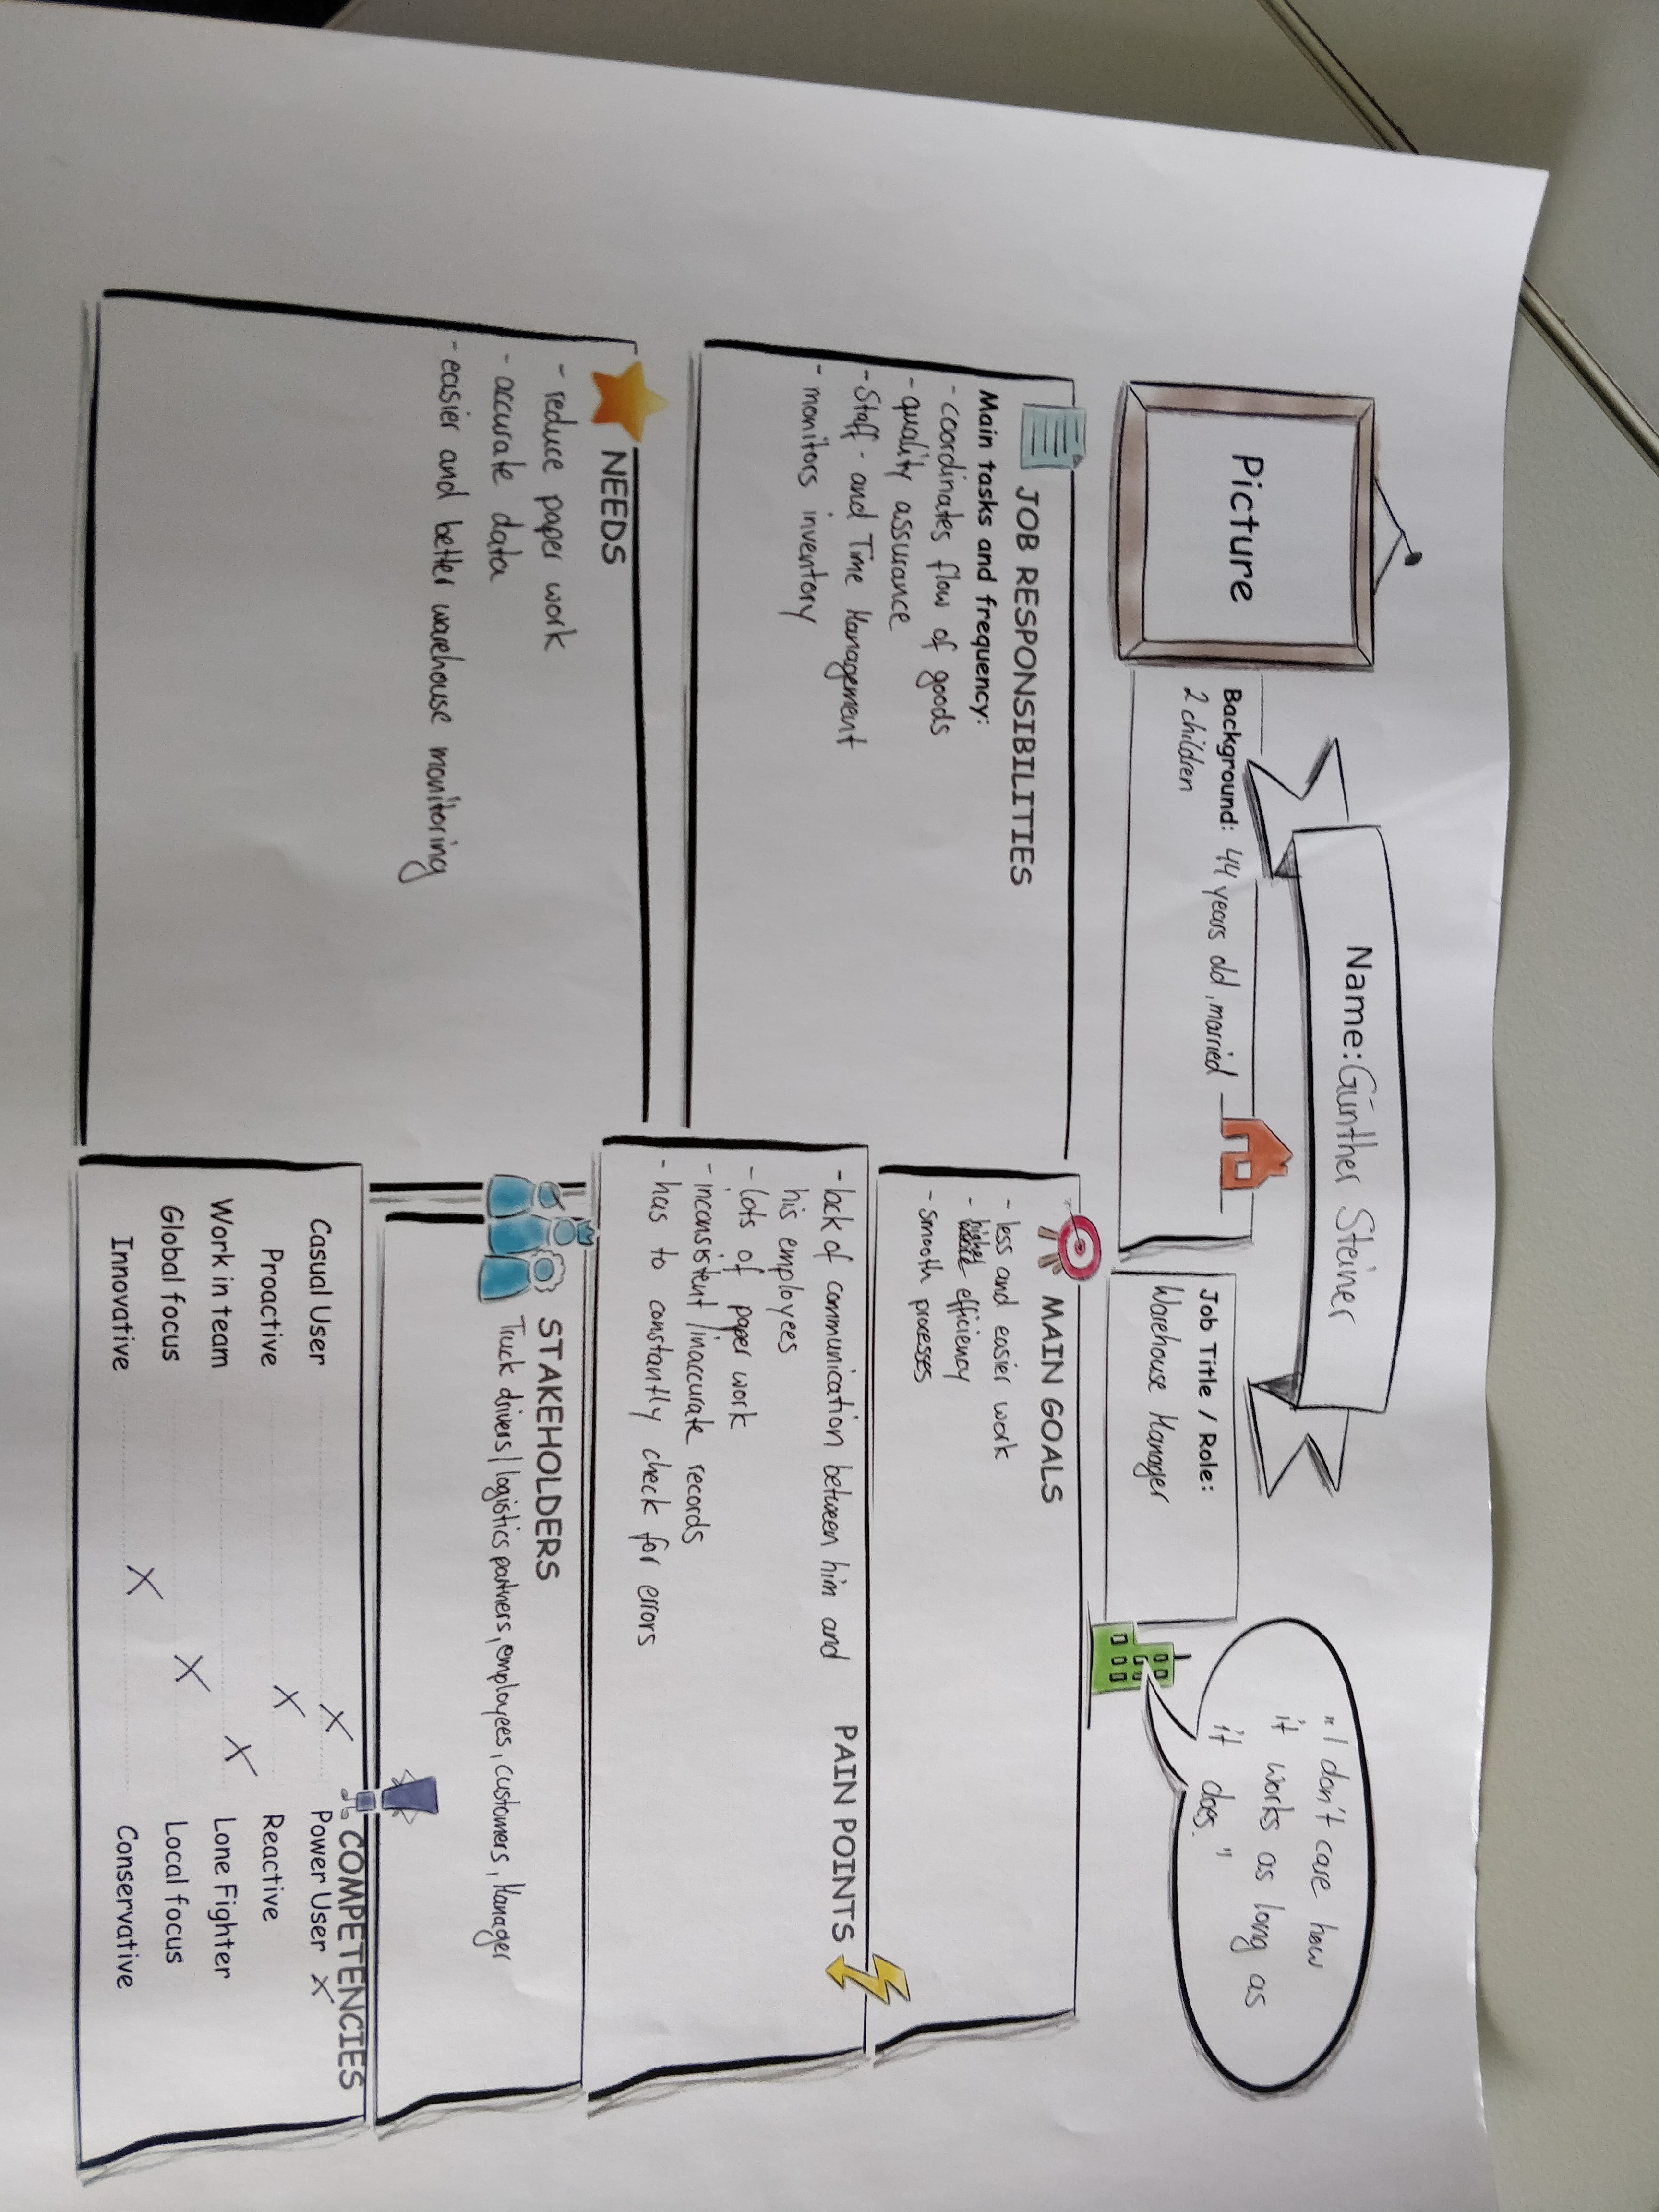 Name: Günther Steiner
Picture
Background: 44 years old, married
2 children
Job Title / Role:
Warehouse Manager
"I don't care how
it works as long as
it does."
JOB RESPONSIBILITIES
Main tasks and frequency:
- coordinates flow of goods
- quality assurance
- Staff- and Time Management
- monitors inventory
MAIN GOALS
- less and easier work
- higher efficiency
- smooth processes
PAIN POINTS
- lack of communication between him and
his employees
- lots of paper work
- inconsistent/inaccurate records
- has to constantly check for errors
NEEDS
- reduce paper work
- accurate data
- easier and better warehouse monitoring
STAKEHOLDERS
Truck drivers/logistics partners, employees, customers, Manager
COMPETENCIES
Casual User X Power User X
Proactive X Reactive
Work in team X Lone Fighter
Global focus X Local focus
Innovative X Conservative